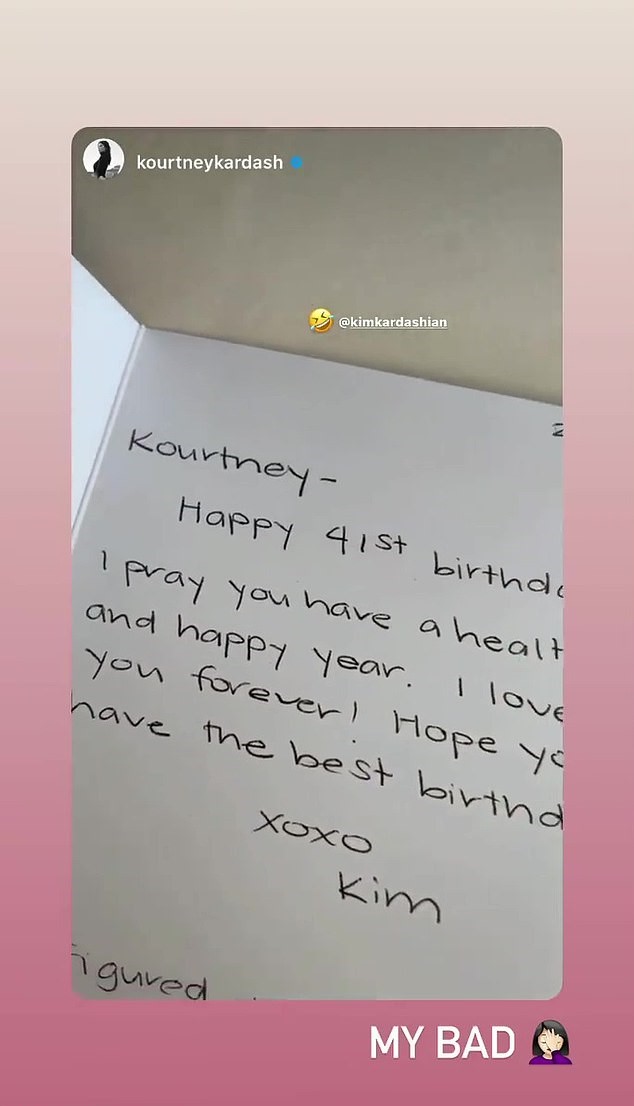 kourtneykardash
🤣 @kimkardashian
Kourtney-
Happy 41st
I pray you have a
and happy year. I love
you forever! Hope
have the best
xoxo
Kim
MY BAD 🤦🏻‍♀️